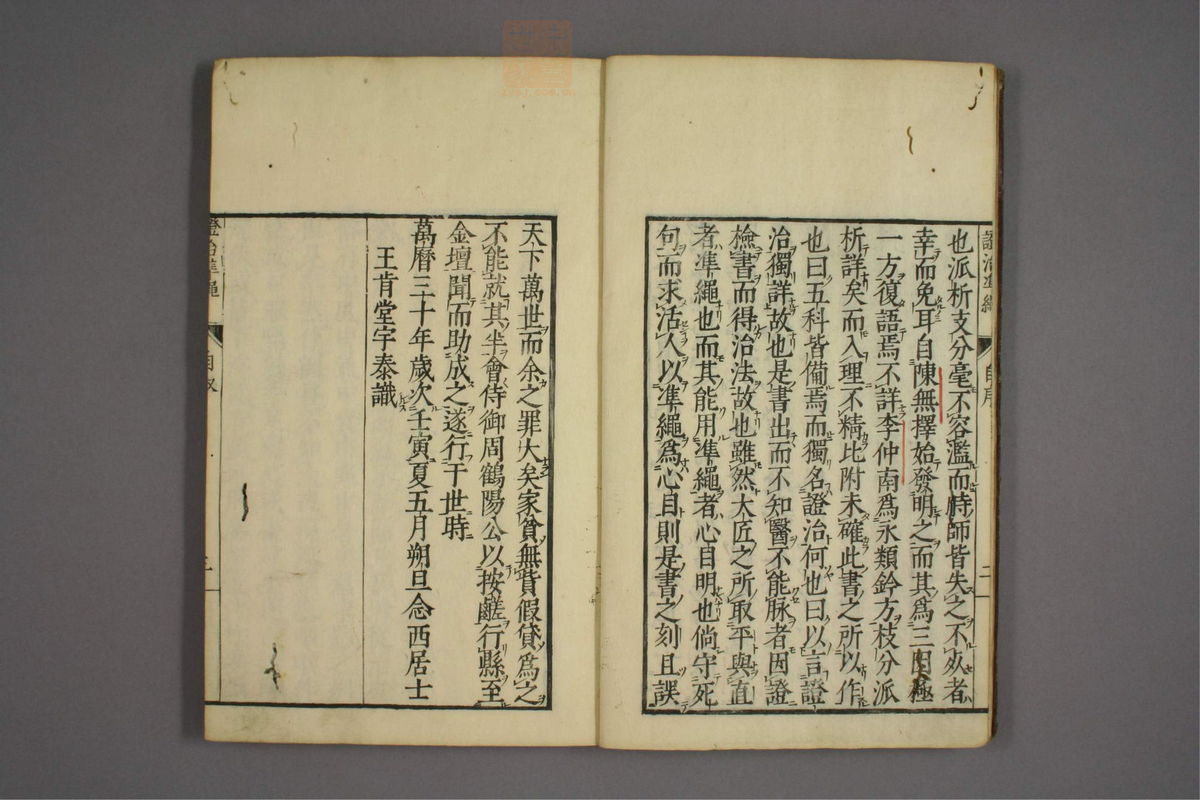 也派析支分毫不容濫而時師皆失之不死者
幸而免耳自陳無擇始發明之而其爲三因極
一方復語焉不詳李仲南爲永類鈐方枝分派
析詳矣而入理不精比附未確此書之所以作
也曰五科皆備焉而獨名證治何也曰以言證
治獨詳故也是書出而不知醫不能脉者因證
檢書而得治法故也雖然大匠之所取平與直
者凖繩也而其能用凖繩者心目明也倘守死
句而求活人以凖繩爲心目則是書之刻且誤
天下萬世而余之罪大矣家貧無貲假貸爲之
不能就其半會侍御周鶴陽公以按鹾行縣至
金壇聞而助成之遂行于世時
萬曆三十年歲次壬寅夏五月朔旦念西居士
王肯堂宇泰識